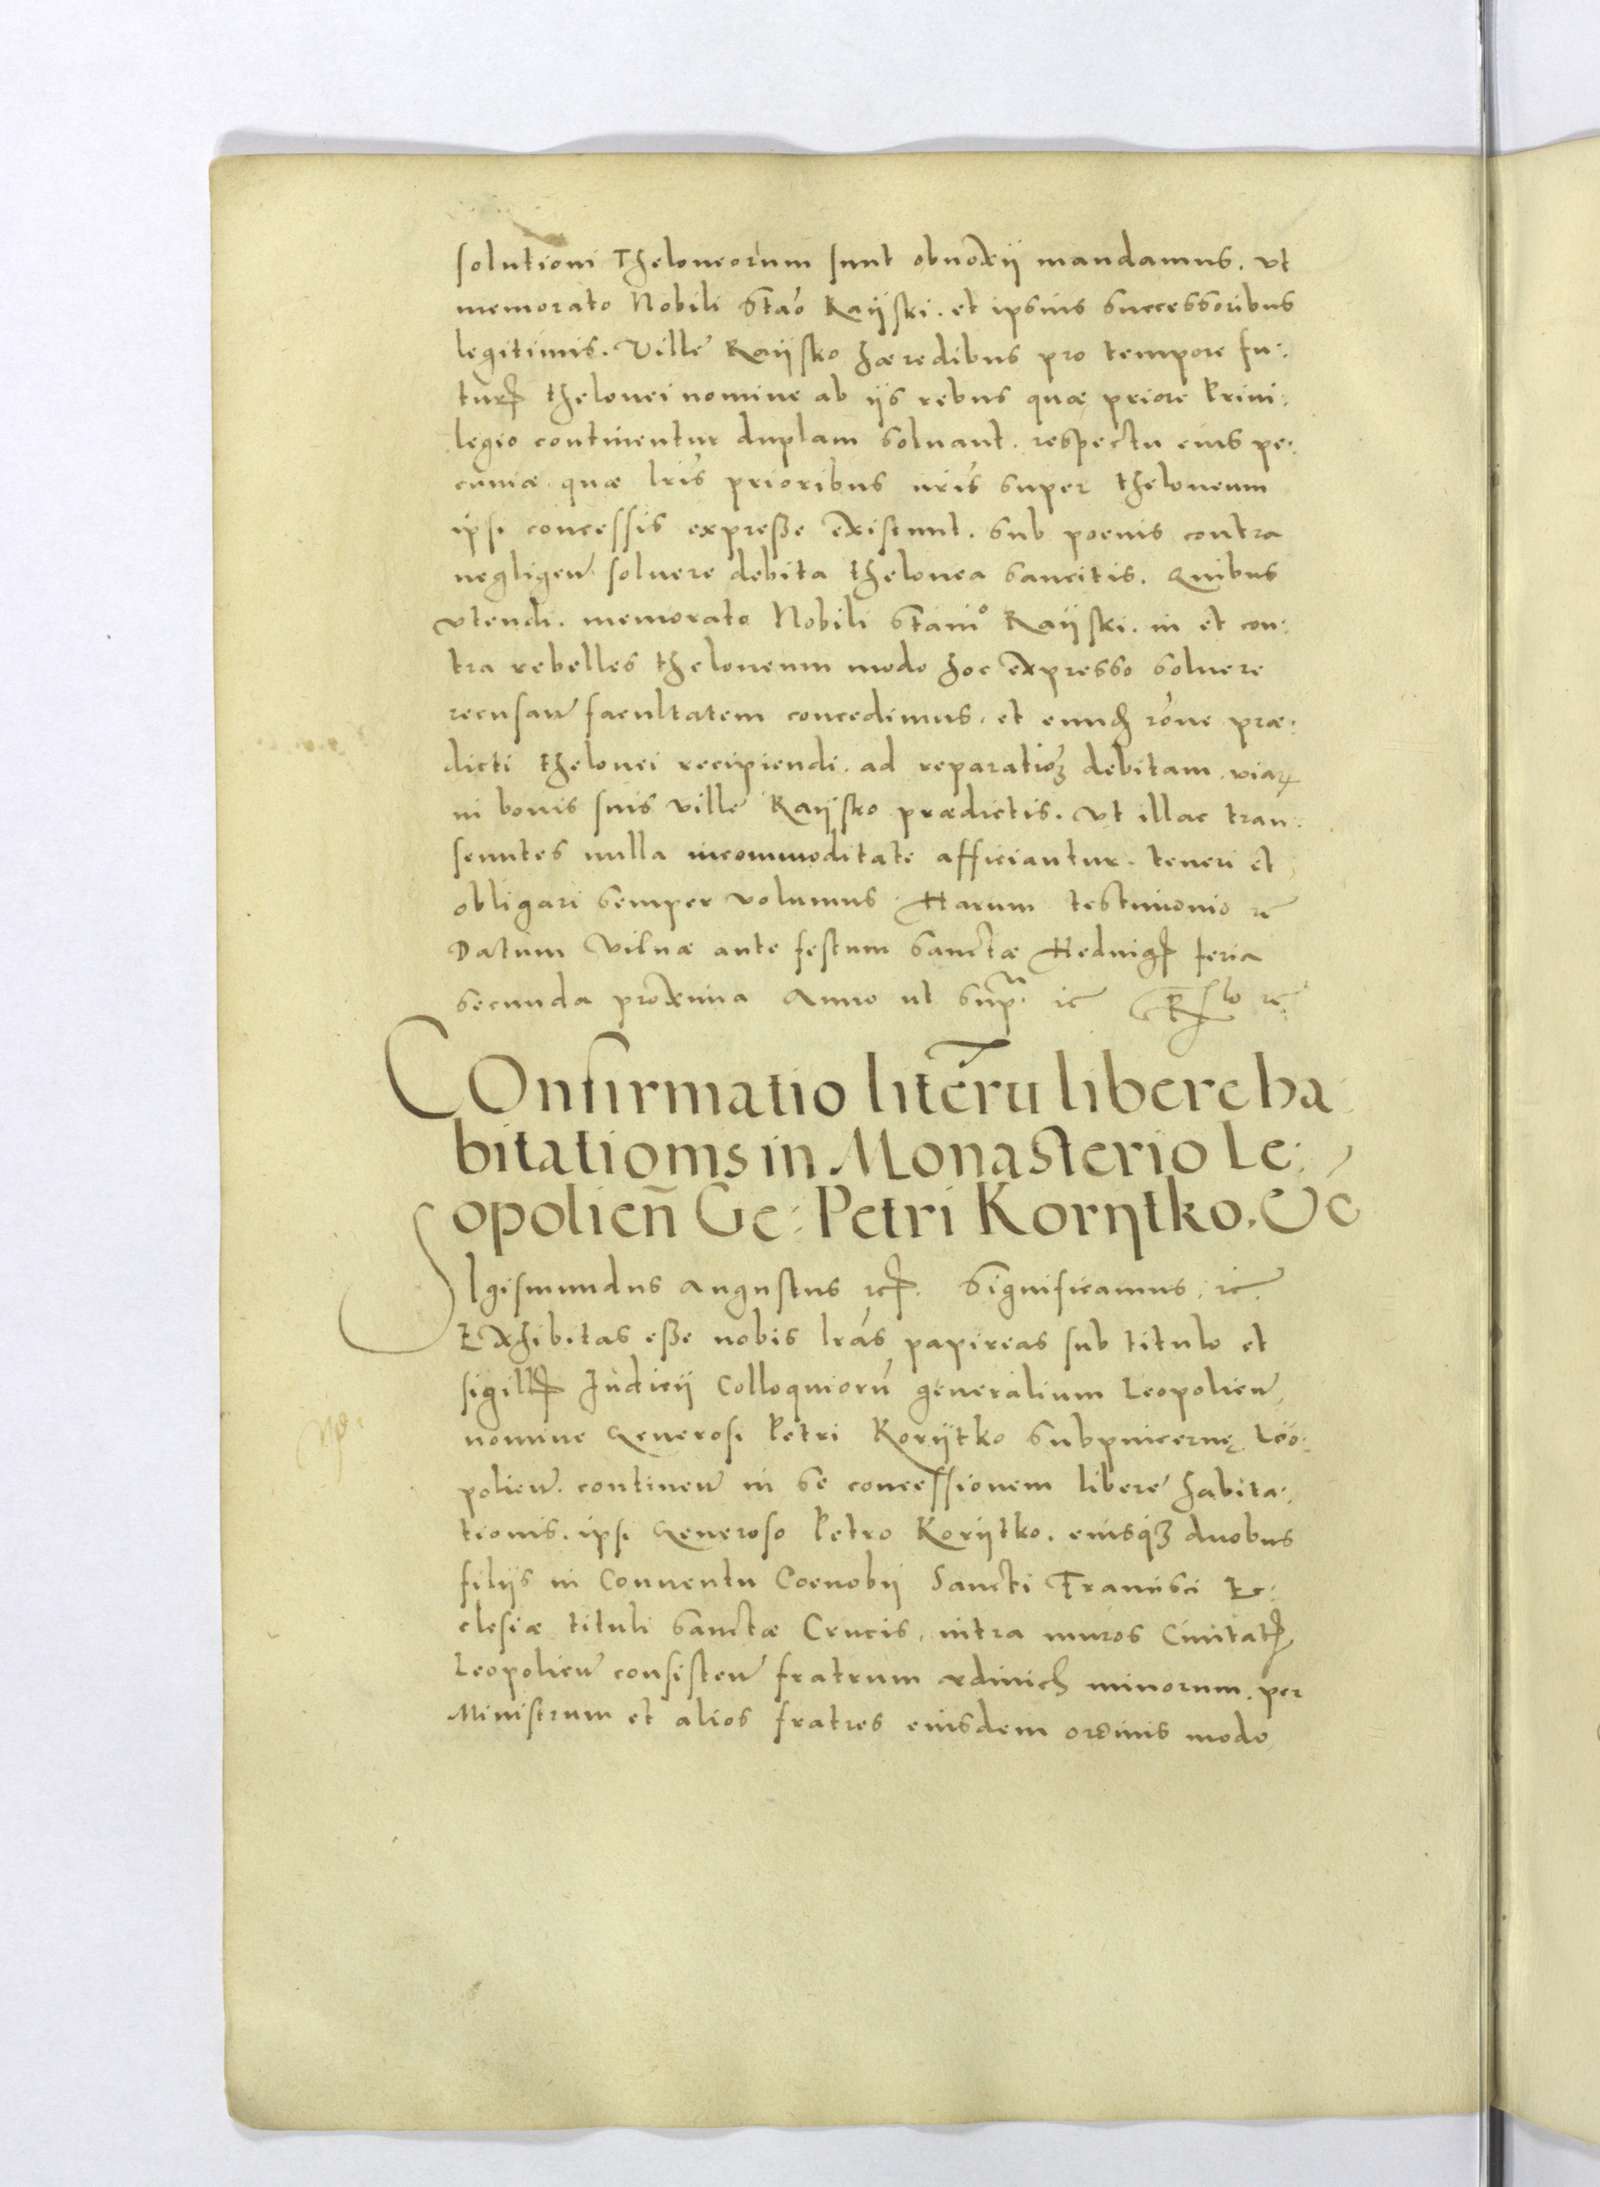 solutioni Theloneorum sunt obnoxij mandamus. vt
memorato Nobili Stão Raijski. et ipsius successoribus
legitimis. Ville Raijsko hæredibus pro tempore fu:
tur thelonei nomine ab ijs rebus quæ priore Priui:
legio continentur duplam soluant. respectu eius pe:
cuniæ quæ lris prioribus nris super theloneum
ipsi concessis expresse existunt. sub poenis contra
negligen soluere debita thelonea sancitis. Quibus
vtendi. memorato Nobili Stanio Raijski. in et con:
tra rebelles theloneum modo hoc expresso soluere
recusan facultatem concedimus. et eund rone præ:
dicti thelonei recipiendi. ad reparatioē debitam viarꝝ
in bonis suis ville Raijsko prædictis. Vt illac tran:
seuntes nulla incommoditate afficiantur. teneri et
obligari semper volumus. Harum testimonio rc
Datum Vilnæ ante festum Sanctæ Heduig feria
secunda proxima Anno ut sup. rc
COnfirmatio literū libere ha
bitationis in Monasterio Le:
opolien̄ Ge: Petri Korytko. &c
SIgismundus Augustus rc. Significamus. rc.
Exhibitas esse nobis lras papireas sub titulo et
sigill Judicij Colloquiorū generalium Leopolien
nomine Generosi Petri Korijtko Subpincernę Leo:
polien. continen in se concessionem libere habita:
tionis. ipsi Generoso Petro Korijtko. eiusqȝ duobus
filijs in Conuentu Coenobij Sancti Francisci Ec:
clesiæ tituli Sanctæ Crucis. intra muros Ciuitat
Leopolien consisten fratrum minorum. per
Ministrum et alios fratres eiusdem ordinis modo